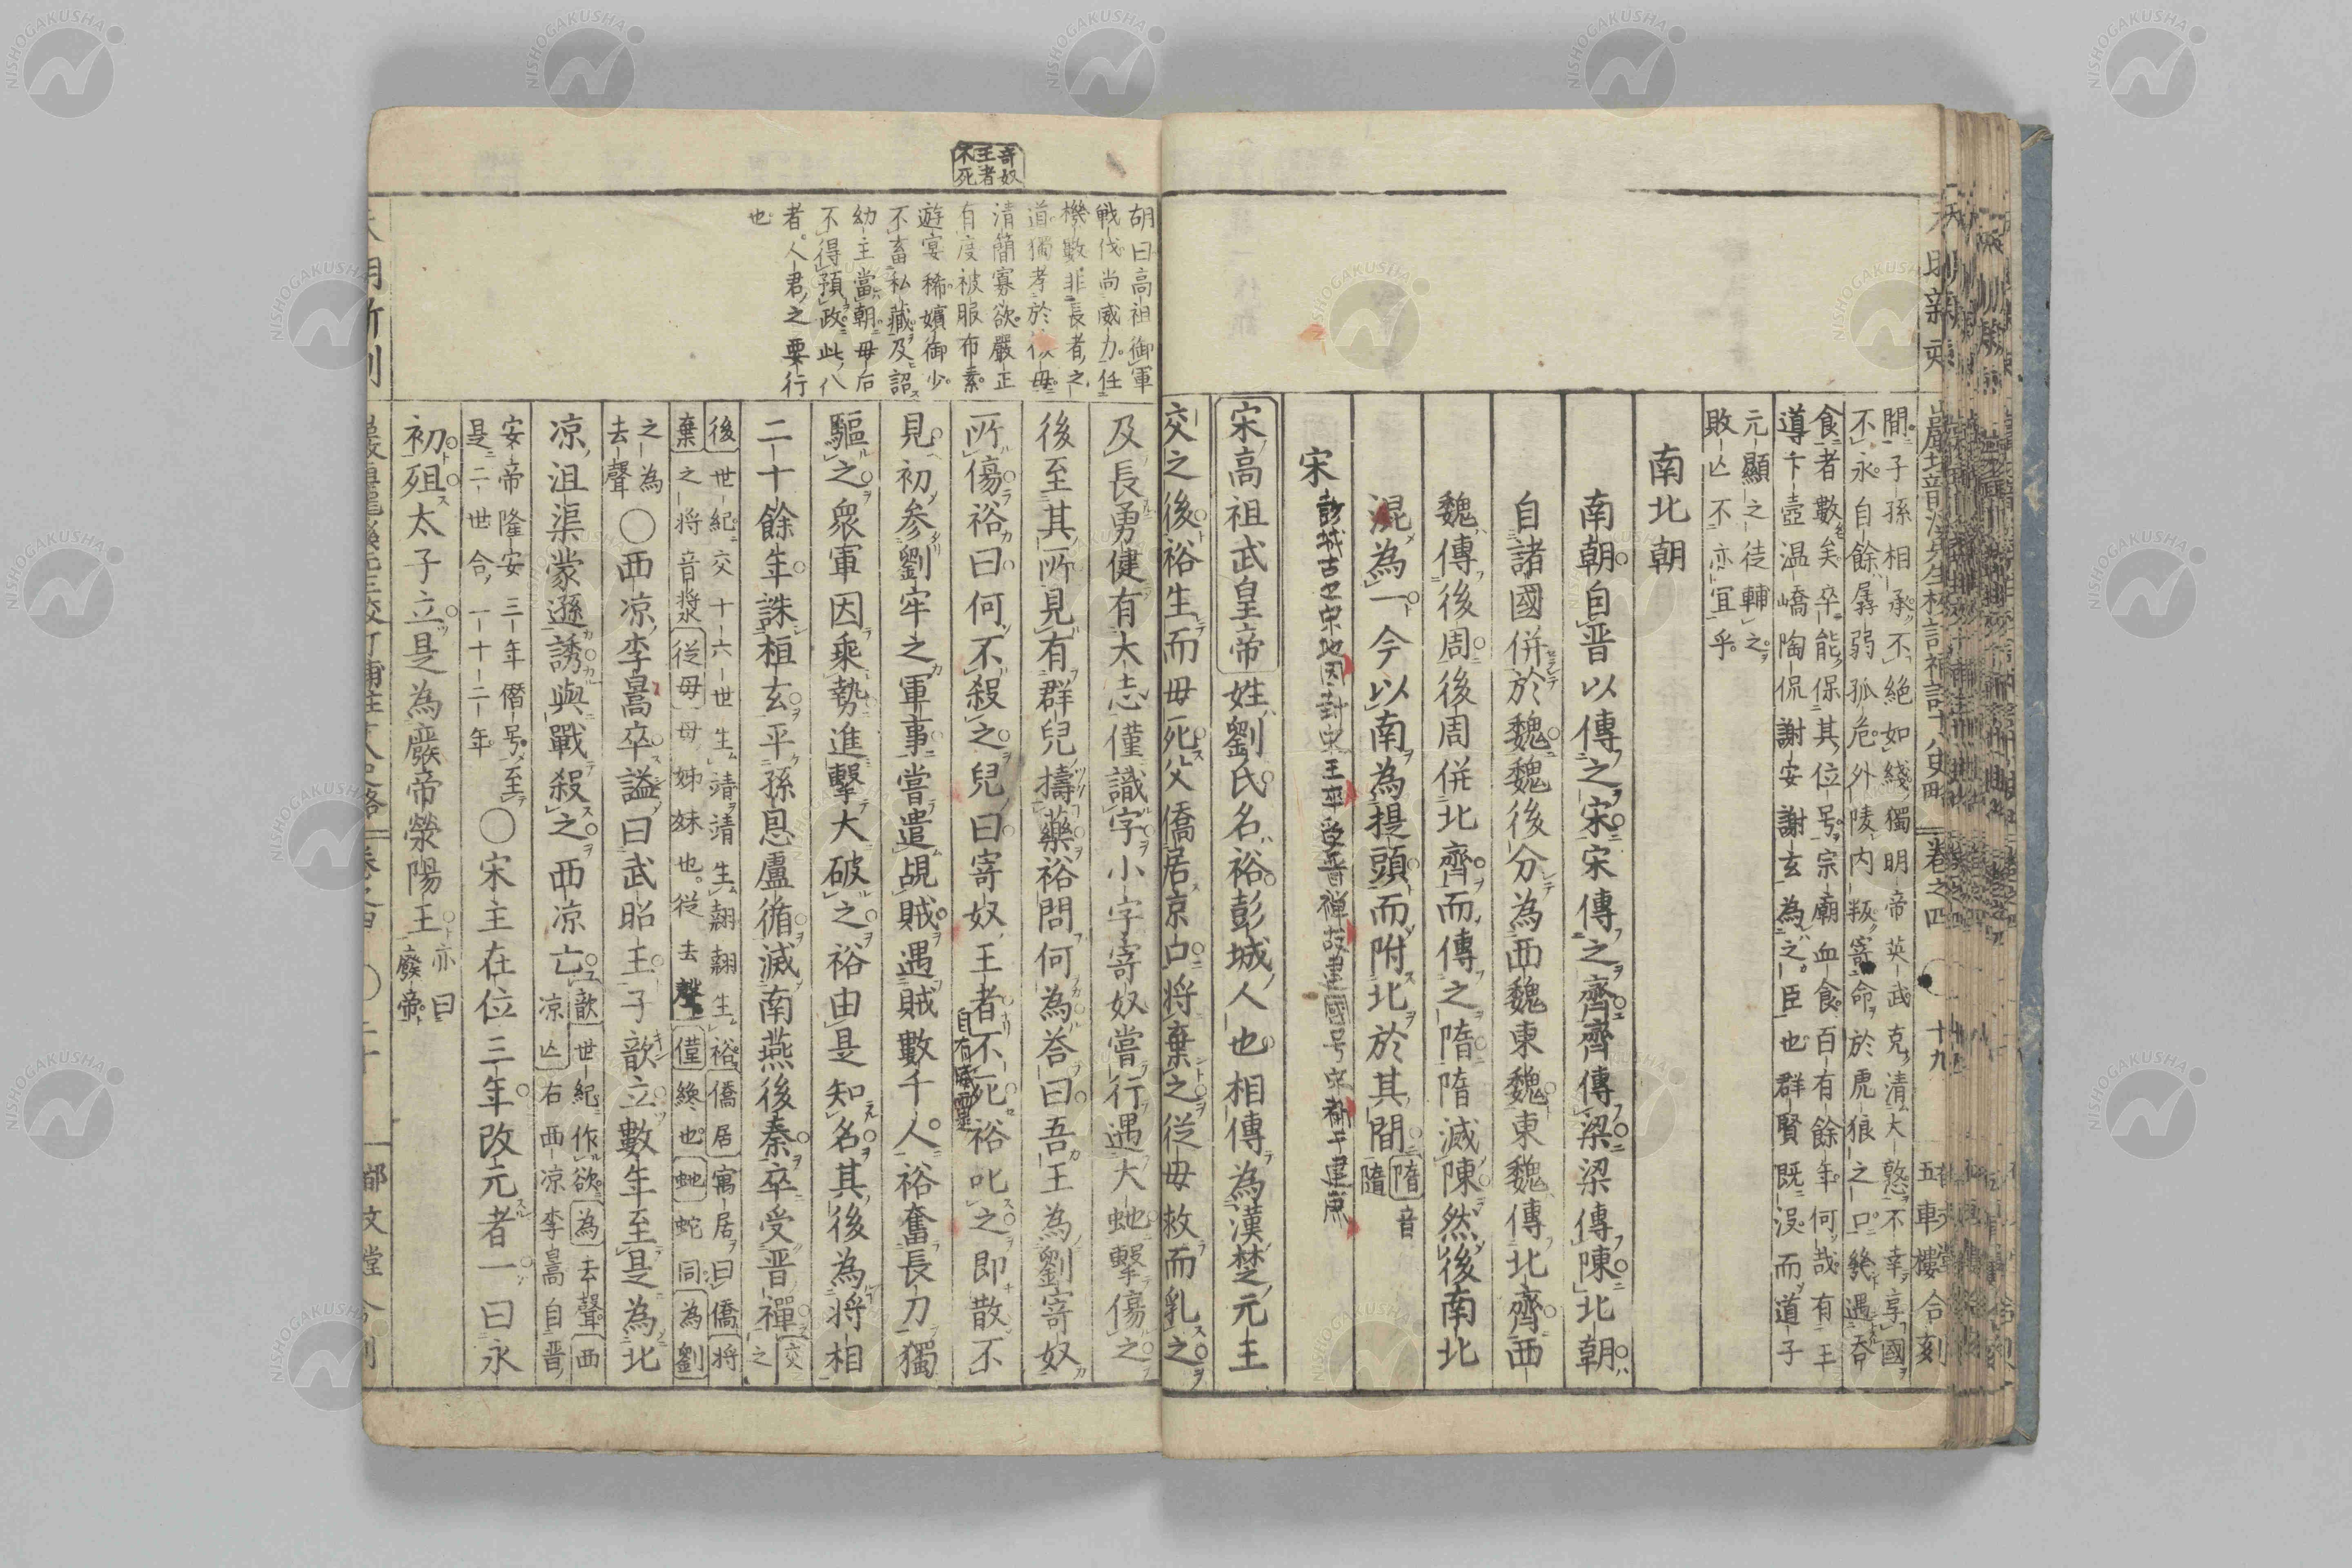 間子孫相承不絕如綫獨明帝英武克清大憝不幸享國
不永自餘孱弱孤危外陵內叛寄命於虎狼之口幾遇吞
食者數矣卒能保其位号宗廟血食百有餘年何哉有王
導卞壺温嶠陶侃謝安謝玄為之臣也群賢既沒而道子
元顯之徒輔之
敗亾不亦宜乎
南北朝
南朝自晋以傳之宋宋傳之齊齊傳之梁梁傳陳北朝
自諸國併於魏魏後分為西魏東魏東魏傳北齊西
魏傳後周後周併北齊而傳之隋隋滅陳然後南北
混為一今以南為提頭而附北於其間
隋音
隋
宋
宋高祖武皇帝姓劉氏名裕彭城人也相傳為漢楚元王
交之後裕生而毋死父僑居京口将棄之從毋救而乳之
五車樓合刻
卷之四
十九
寄奴
王者
不死
胡曰高祖御軍
戦伐尚威力任
機數非長者之
道獨孝於後毋
清簡寡欲嚴正
有度被服布素
遊宴稀嬪御少
不畜私藏及詔
幼主當朝毋后
不得預政此八
者人君之要行
也
及長勇健有大志僅識字小字寄奴嘗行遇大虵擊傷之
後至其所見有群兒擣藥裕問何為荅曰吾王為劉寄奴
所傷裕曰何不殺之兒曰寄奴王者不死裕叱之即散不
見初参劉牢之軍事嘗遣覘賊遇賊數千人裕奮長刀獨
驅之衆軍因乘勢進擊大破之裕由是知名其後為将相
二十餘年誅桓玄平孫恩盧循滅南燕後秦卒受晋禪
交
之
後世紀交十六世生靖靖生翹翹生裕僑居寓居曰僑将
棄之将音漿從毋母姊妹也從去聲僅纔也虵蛇同為劉
之為
去聲
〇西凉李暠卒謚曰武昭王子歆立數年至是為北
凉沮渠蒙遜誘與戰殺之西凉亡
歆世紀作欲為去聲西
凉亾右西凉李暠自晋
安帝隆安三年僭号至
是二世合一十二年
〇宋主在位三年改元者一曰永
初殂太子立是為廢帝滎陽王
亦曰
廢帝